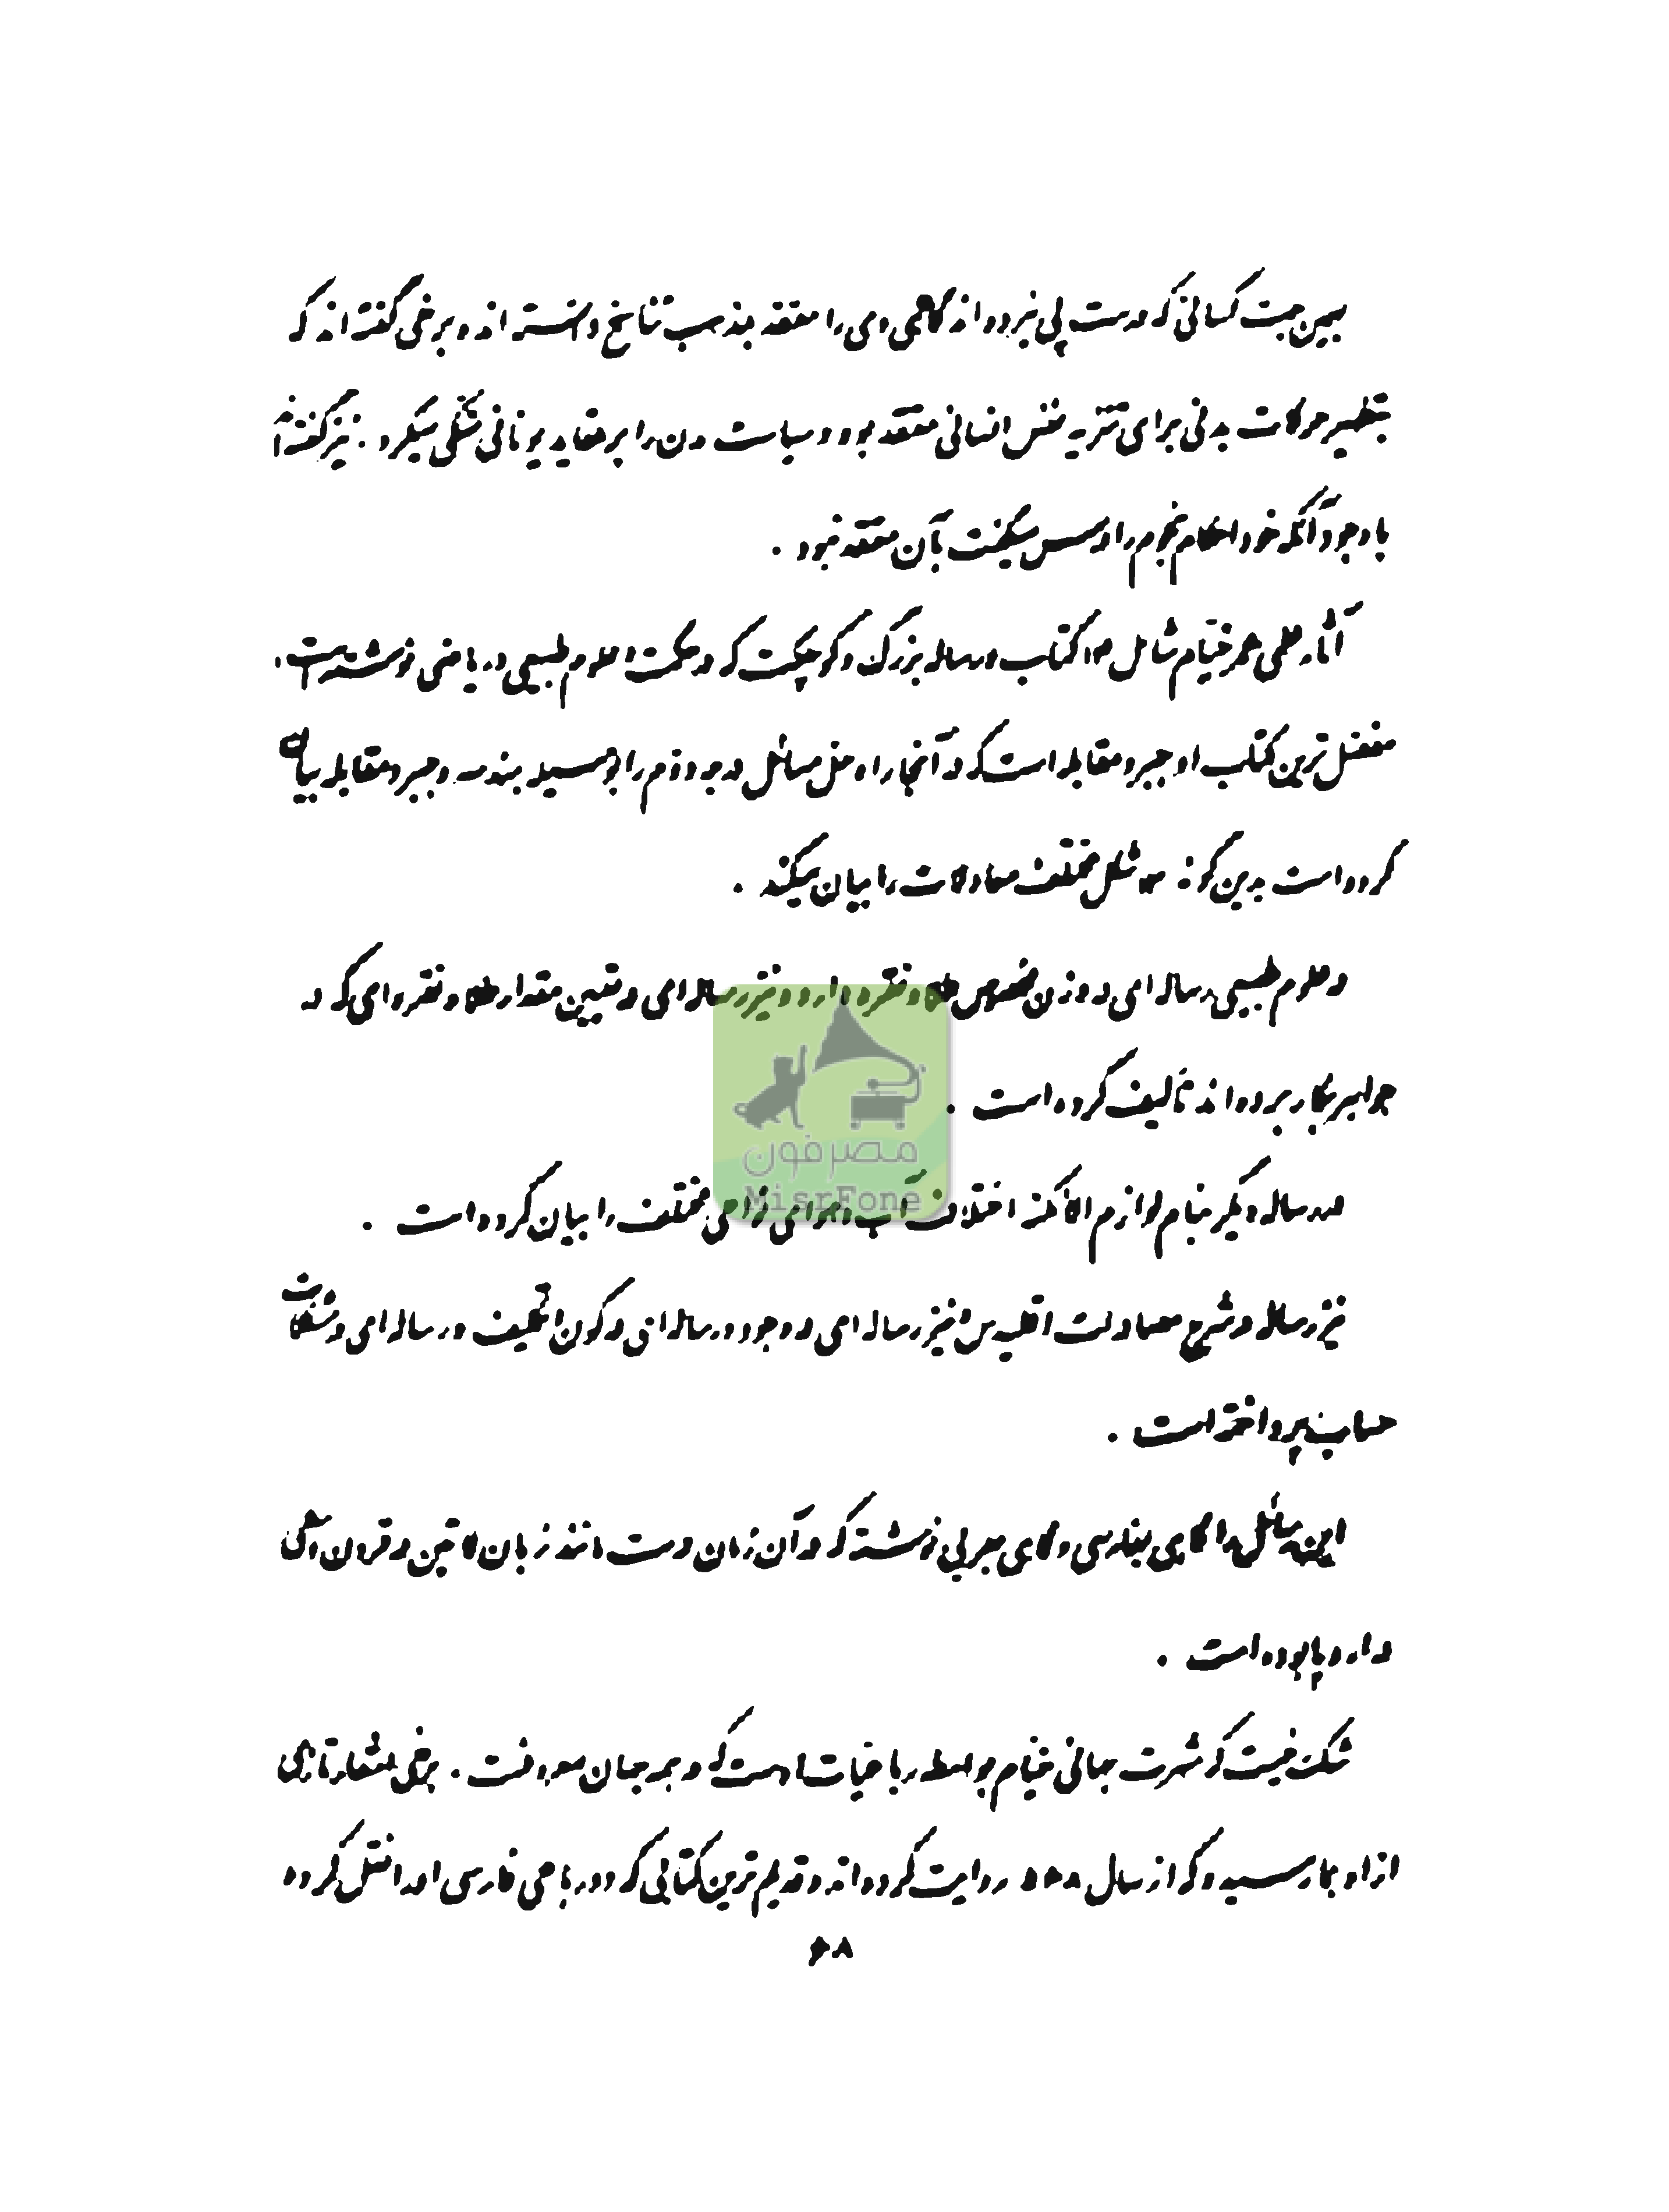 بهمین جهت کسانی که درست پی نبرده اند گاهی وی را معتقد بمذهب تناسخ دانسته اند و برخی گفته اند که
بتطهیر حرکات بدنی برای تنزیه نفس انسانی معتقد بود و سیاست مدن را بر عقاید یونانی متکی میکرد . نیز گفته‌اند
با وجود آنکه خود احکام نجوم را درس میگفت بآن معتقد نبود .
آثار علمی عمر خیام شامل ۱۴ کتاب و رساله بزرگ و کوچکست که در حکمت و علوم طبیعی و ریاضی نوشته است .
مفصل ترین کتاب او جبر و مقابله است که در آنجا راه حل مسائل درجه دوم را بوسیله هندسه و جبر و مقابله بیان
کرده است بدین گونه شکل مختلف معادلات را بیان میکند .
در علوم طبیعی رساله ای در وزن مخصوص طلا و نقره دارد و نیز رساله ای در تعیین مقدار طلا و نقره ای که در
جواهر بکار برده اند تألیف کرده است .
در رساله دیگر بنام لوازم الامکنه اختلاف آب و هوای نواحی مختلف را بیان کرده است .
نیز رساله در شرح مصادرات اقلیدس و نیز رساله ای در وجود و رساله ای در کون و تکلیف و رساله ای در مشکلات
حساب پرداخته است .
این رسائل را گاهی بفارسی و گاهی بعربی نوشته که در آن زمان درست مانند زبان لاتین در قرون
در اروپا بوده است .
شک نیست که شهرت جهانی خیام بواسطه رباعیات اوست که در همه جهان معروفست . برخی اشعار تازی
از او بما رسیده که از سال روایت کرده اند و قدیم ترین کتابی که دو رباعی فارسی او را نقل کرده
۶۸
مصرفون
MisrFone